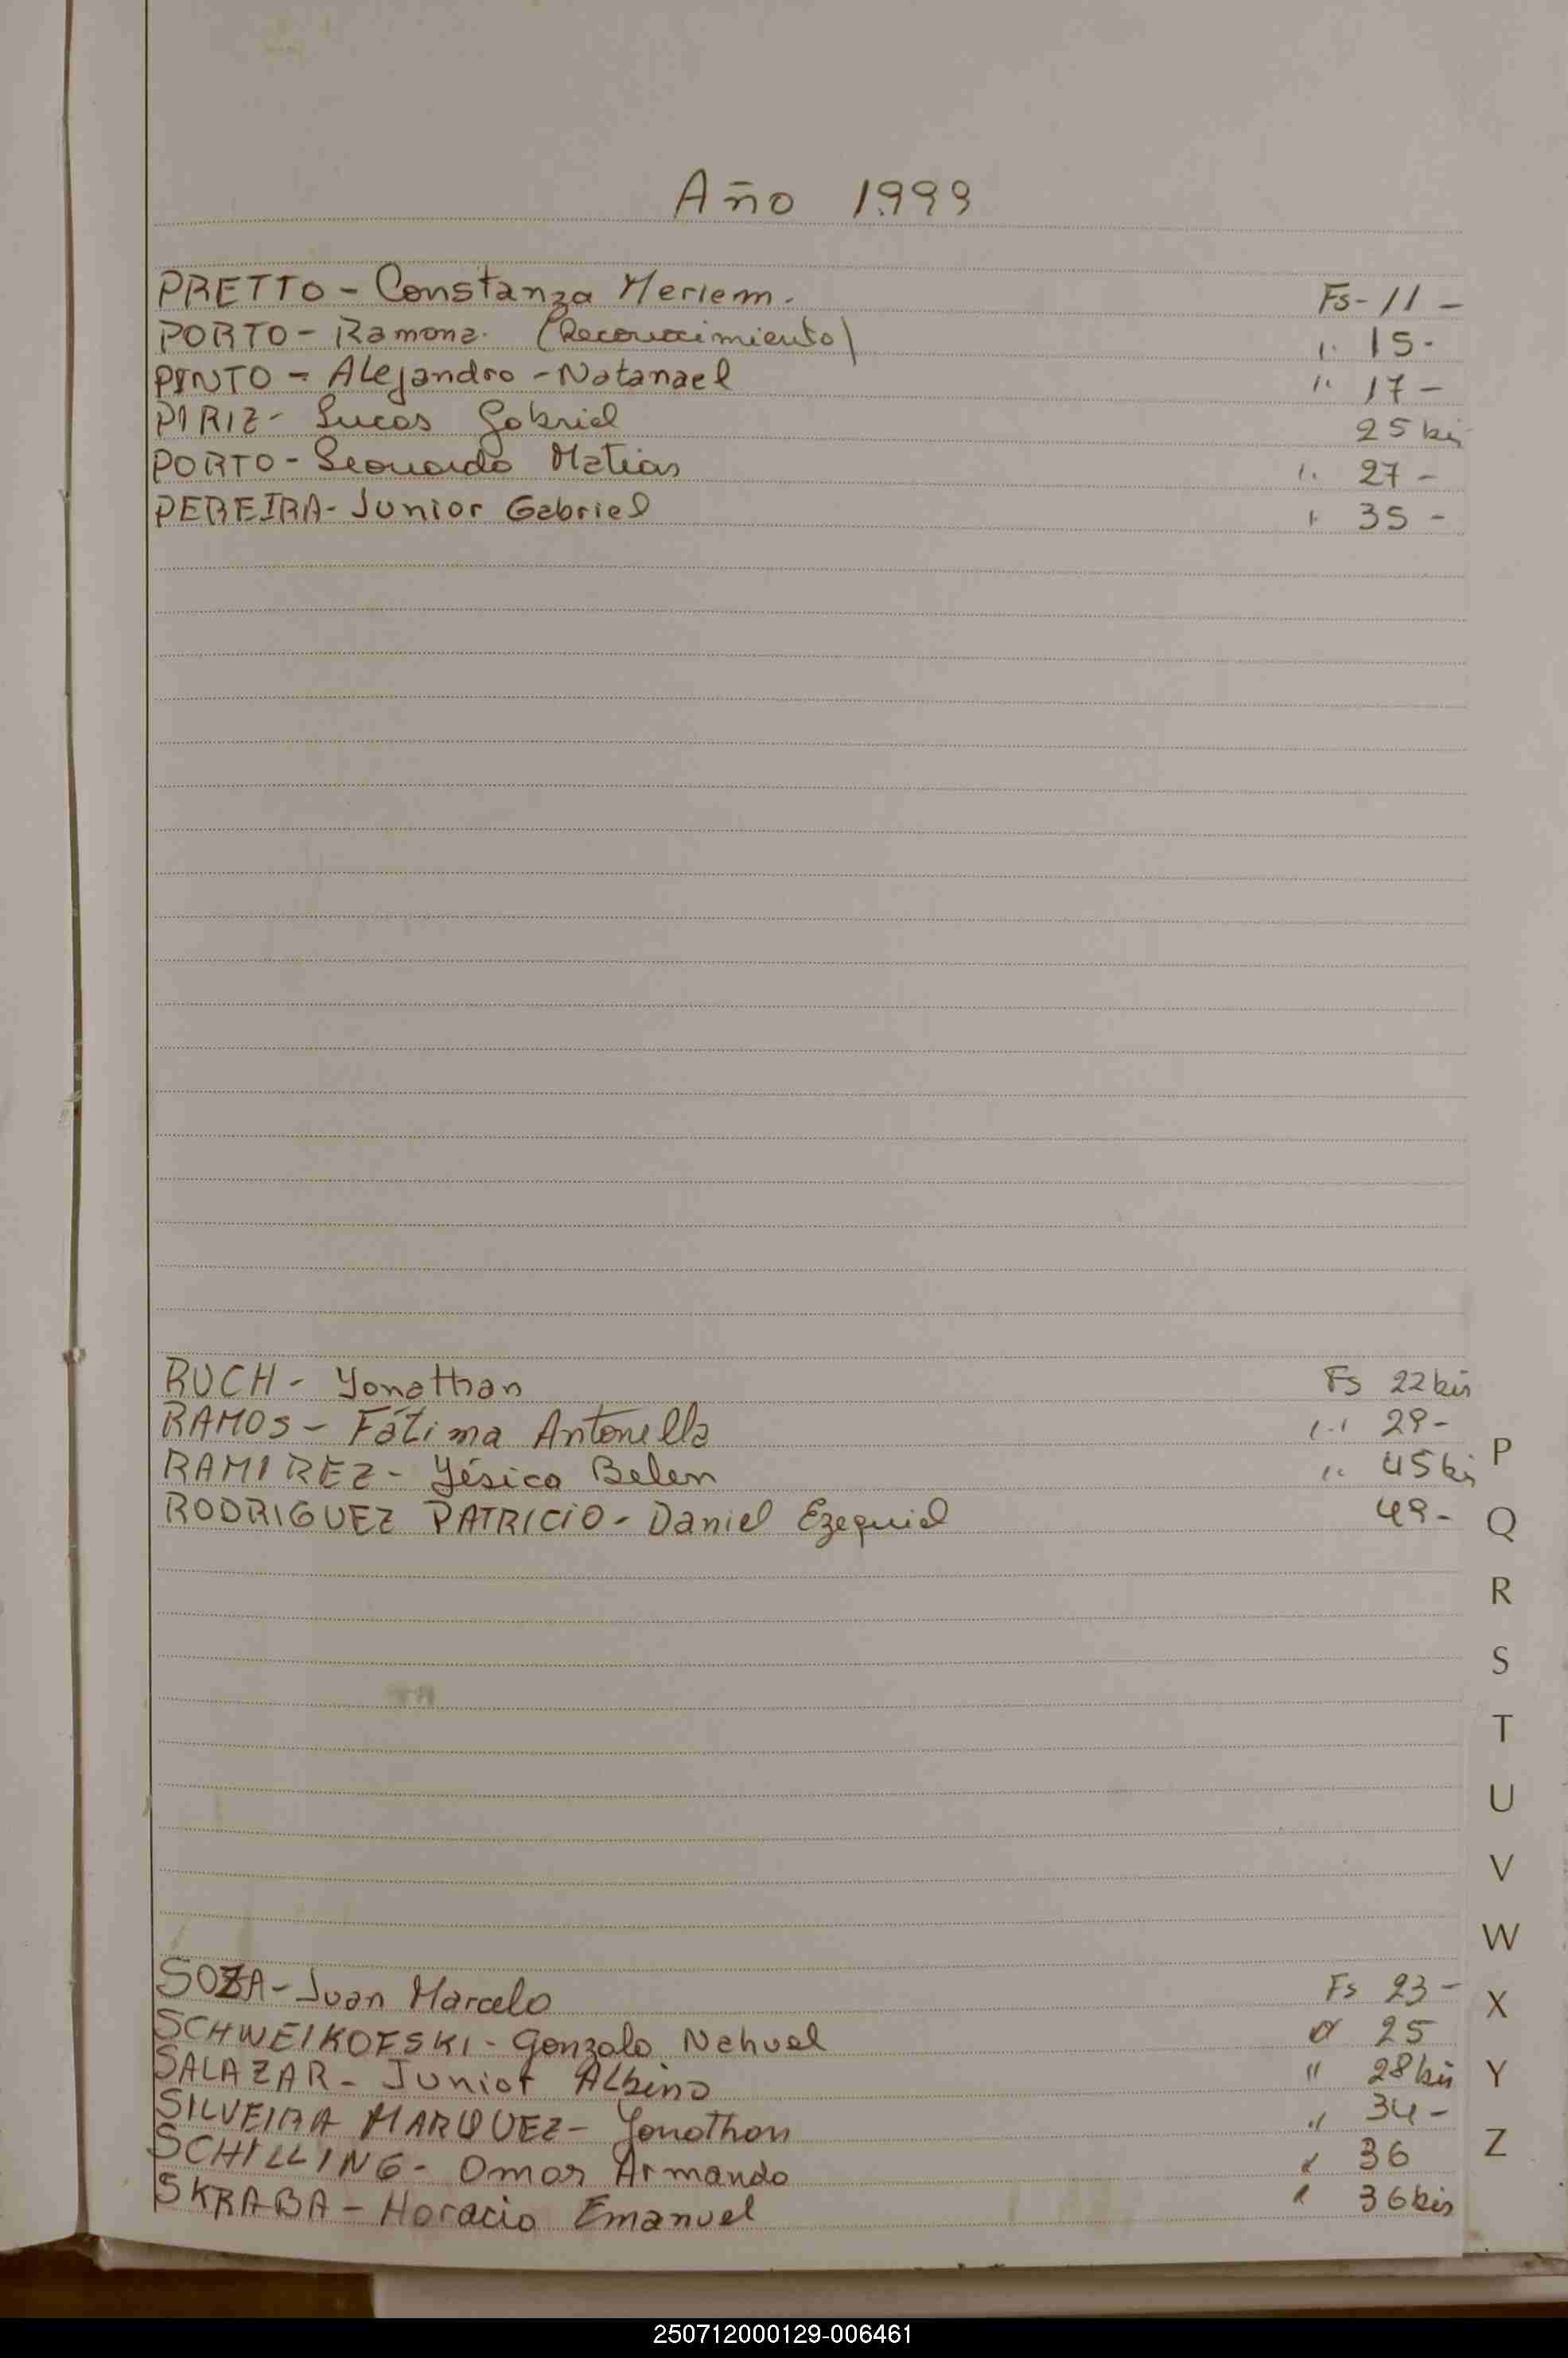 Año 1999
PRETTO - Constanza Meriem. Fs - 11 -
PORTO - Ramona. (Reconocimiento) " 15 -
PINTO - Alejandro - Natanael " 17 -
PIRIZ - Lucas Gabriel 25 bis
PORTO - Leonardo Matias " 27 -
PEREIRA - Junior Gabriel " 35 -
RUCH - Yonathan Fs 22 bis
RAMOS - Fátima Antonella " 29 -
RAMIREZ - Yésica Belen " 45 bis
RODRIGUEZ PATRICIO - Daniel Ezequiel 49 -
SOZA - Juan Marcelo Fs 23 -
SCHWEIKOFSKI - Gonzalo Nehuel " 25
SALAZAR - Junior Albino " 28 bis
SILVEIRA MARQUEZ - Jonathan " 34 -
SCHILLING - Omar Armando " 36
SKRABA - Horacio Emanuel " 36 bis
P
Q
R
S
T
U
V
W
X
Y
Z
250712000129-006461